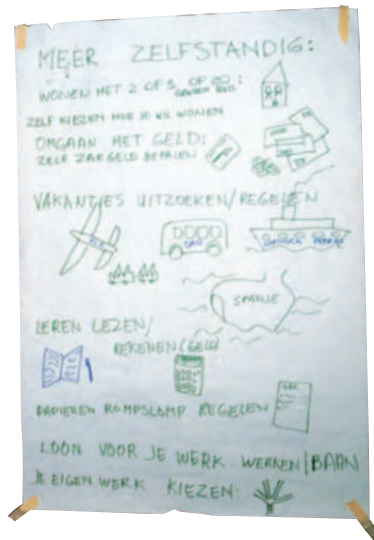 MEER ZELFSTANDIG:
WONEN MET 2 OF 3 OF 20:
GEWOON HUIS
ZELF KIEZEN HOE JE WIL WONEN
OMGAAN MET GELD:
ZELF ZAKGELD BEPALEN
VAKANTIES UITZOEKEN/REGELEN
SPANJE
LEREN LEZEN/
REKENEN (GELD)
PAPIEREN ROMPSLOMP REGELEN
LOON VOOR JE WERK WERKEN/BAAN
JE EIGEN WERK KIEZEN